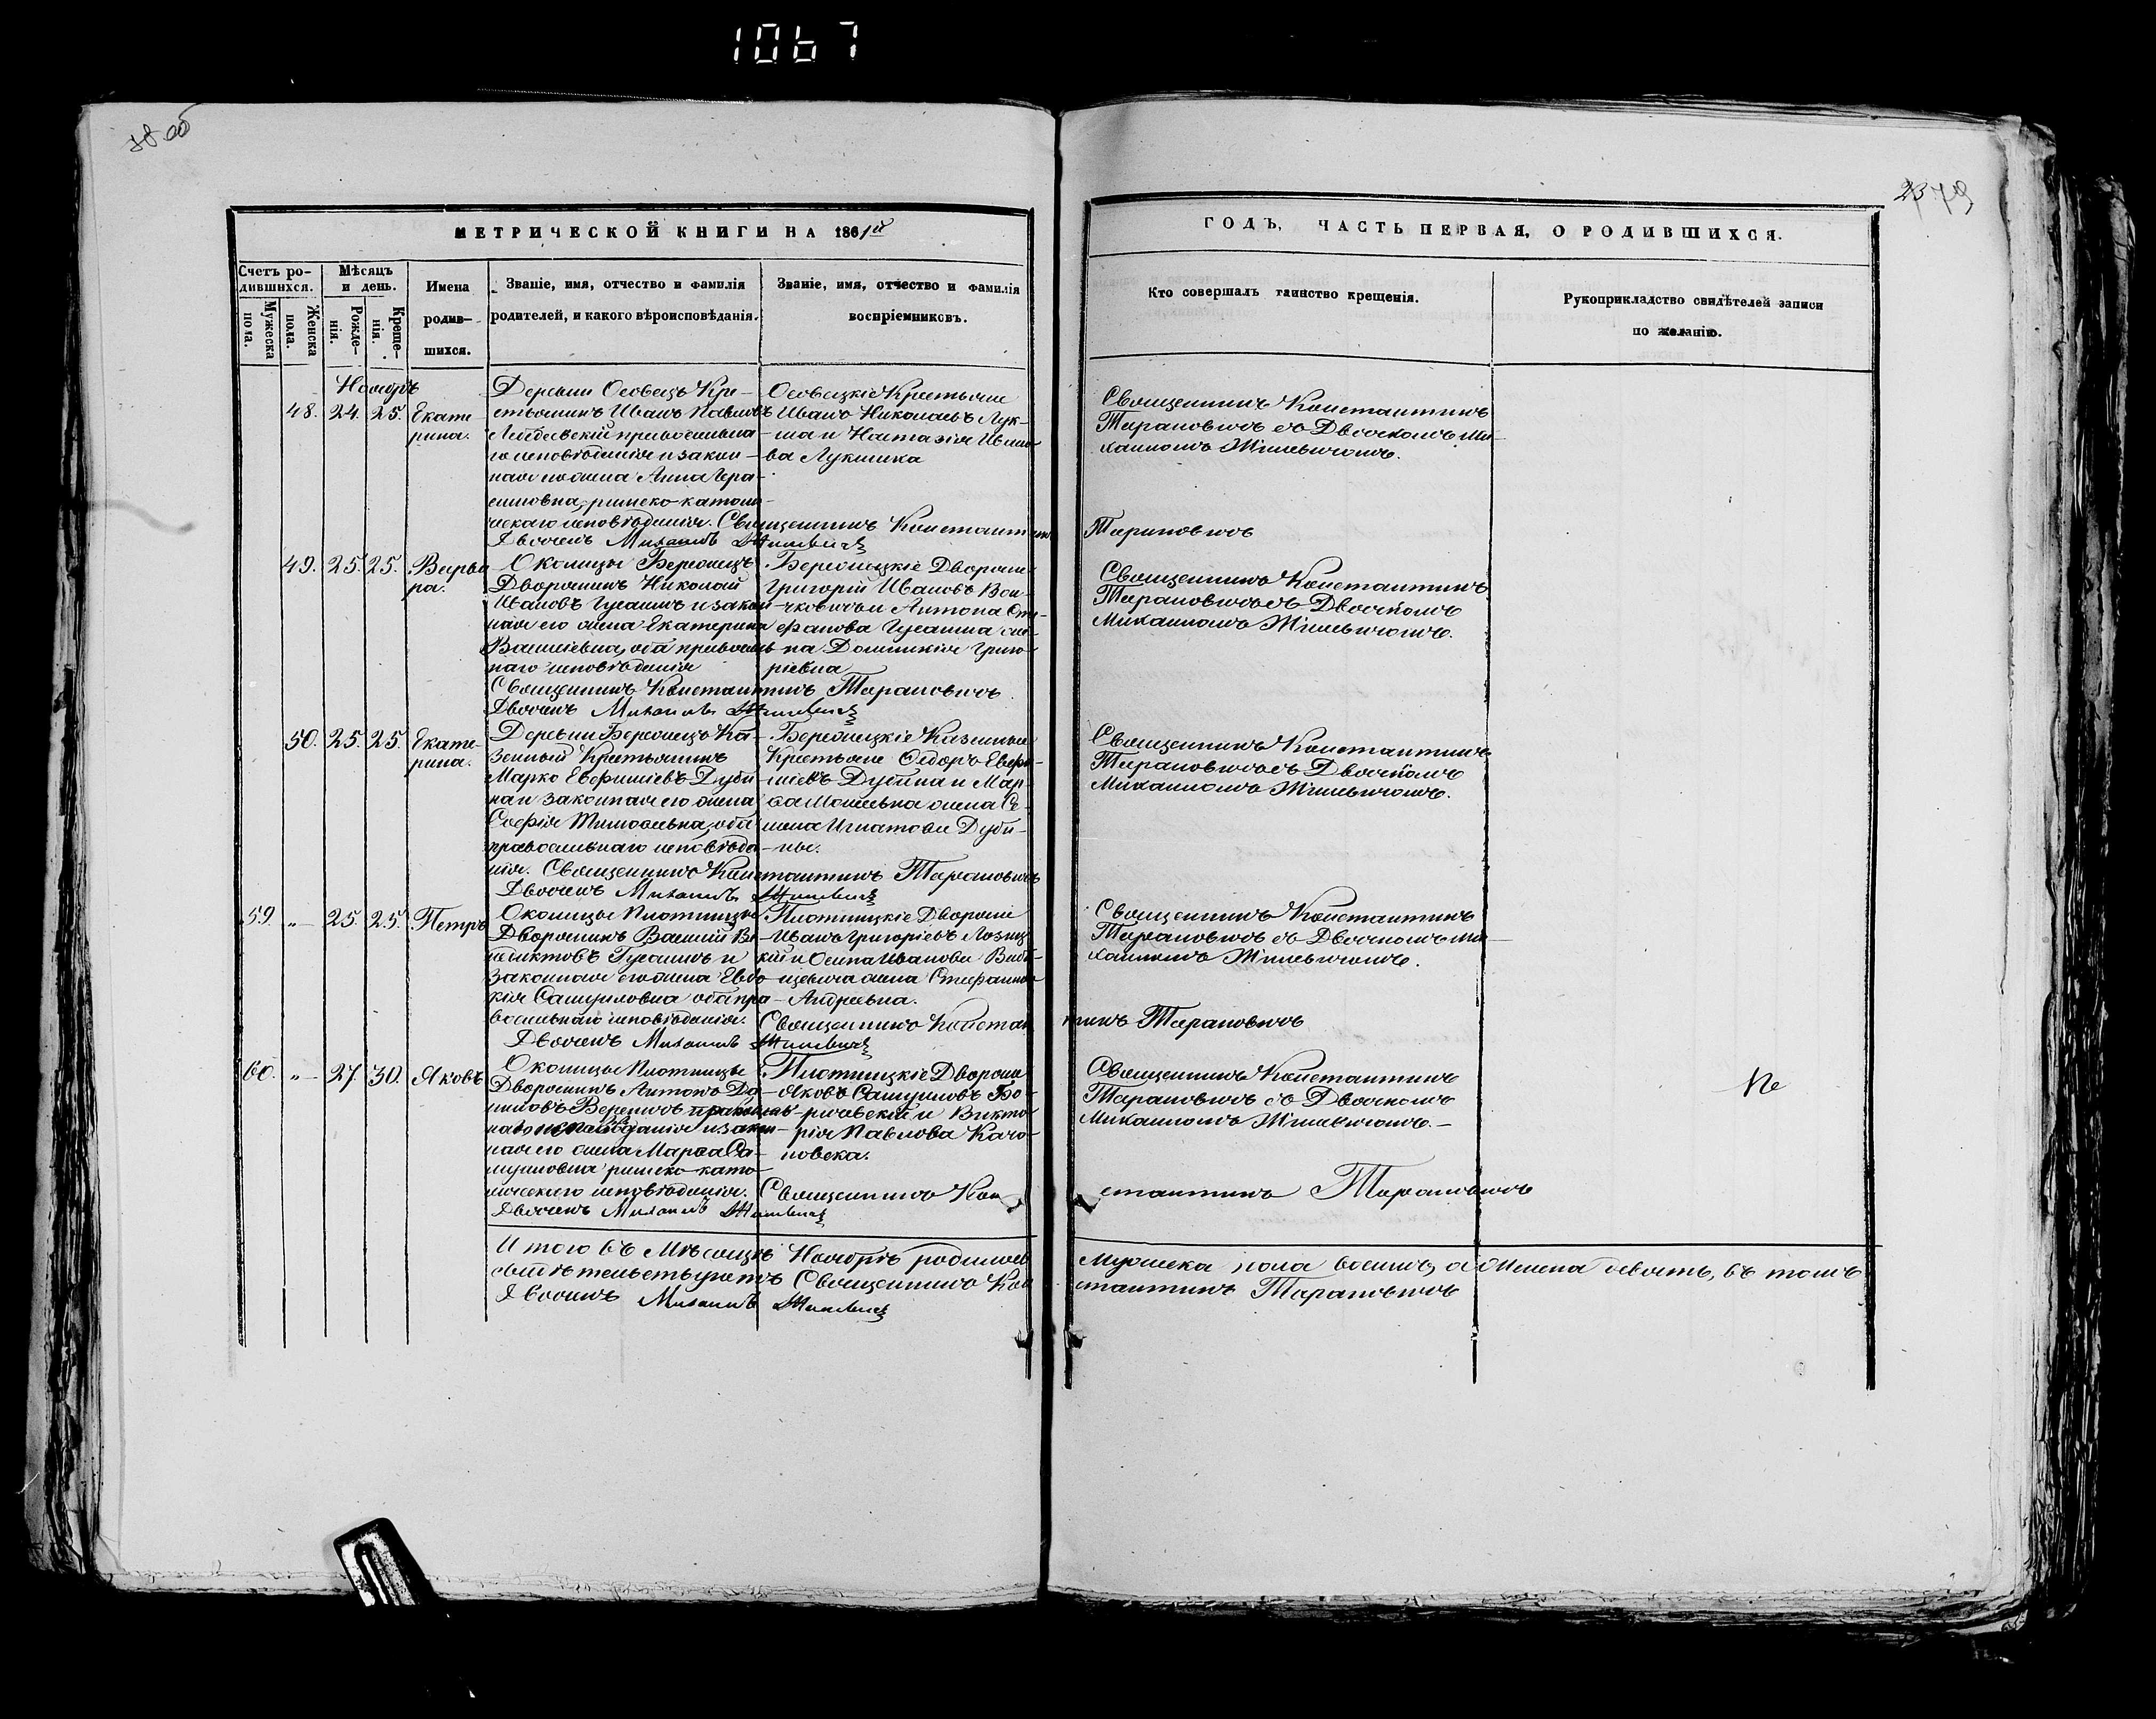 1067
78 об
23 79
МЕТРИЧЕСКОЙ КНИГИ НА 1861й
ГОДЪ, ЧАСТЬ ПЕРВАЯ, О РОДИВШИХСЯ.
Счетъ ро-
дившихся.
Мужеска
пола.
Женска
пола.
Мѣсяцъ
и день.
Рожде-
нія.
Креще-
нія.
Имена
родив-
шихся.
Званіе, имя, отчество и фамилія
родителей, и какого вѣроисповѣданія.
Званіе, имя, отчество и фамилія
воспріемниковъ.
Кто совершалъ таинство крещенія.
Рукоприкладство свидѣтелей записи
по желанію.
Ноябрь
48. 24. 25. Екате
рина.
Деревни Особецъ Кре-
стьянинъ Иванъ Павловъ
православна
го исповѣданія и закон-
ная его жена Анна Гера-
симовна, римско-католи-
ческаго исповѣданія. Священникъ Константинъ Тарановичъ
Дьячекъ Михаилъ Жилевичъ
Особецкіе Крестьяне
Иванъ Николаевъ Лук-
ша и Настазія Ивано-
ва Лукшика
Священникъ Константинъ
Тарановичъ съ Дьячкомъ Ми-
хаиломъ Жилевичомъ.
49. 25. 25. Варва
ра.
Околицы Бережецъ
Дворянинъ Николай
Ивановъ Гусаинъ и закон-
ная его жена Екатерина
Василіевна, оба православ-
наго исповѣданія
Священникъ Константинъ Тарановичъ
Дьячекъ Михаилъ Жилевичъ
Бережецкіе Дворяне
Григорій Ивановъ Вои-
чковичъ и Антона Сте-
фанова Гусаина же-
на Доминикія Григо-
ріевна
Священникъ Константинъ
Тарановичъ съ Дьячкомъ
Михаиломъ Жилевичомъ.
50. 25. 25. Екате-
рина.
Деревни Бережецъ Ка-
зенный Крестьянинъ
Марко Евфиміевъ Дуби
на и законная его жена
Софія Тимофеевна, оба
православнаго исповѣда-
нія. Священникъ Константинъ Тарановичъ
Дьячекъ Михаилъ Жилевичъ
Бережецкіе Казенные
Крестьяне Ѳедоръ Евфи-
міевъ Дубина и Мар-
ѳа Моисеевна жена Се-
мена Игнатова Дуби-
ны.
Священникъ Константинъ
Тарановичъ съ Дьячкомъ
Михаиломъ Жилевичомъ.
59. „ 25. 25. Петръ
Околицы Плотницы
Дворянинъ Василій Ве-
недиктовъ Гусаинъ и
законная его жена Евдо-
кія Самуиловна оба пра-
вославнаго исповѣданія. Священникъ Константинъ Тарановичъ
Дьячекъ Михаилъ Жилевичъ
Плотницкіе Дворяне
Иванъ Григоріевъ Лозиц-
кій и Осипа Иванова
жена Стефанида
Андреевна.
Священникъ Константинъ
Тарановичъ съ Дьячкомъ Ми-
хаиломъ Жилевичомъ.
60. „ 27. 30. Яковъ
Околицы Плотницы
Дворянинъ Антонъ Да-
ниловъ Вереничъ православ-
наго исповѣданія и закон-
ная его жена Марѳа Са-
муиловна римско-като-
лическаго исповѣданія. Священникъ Константинъ Тарановичъ
Дьячекъ Михаилъ Жилевичъ
Плотницкіе Дворяне
Яковъ Самуиловъ Бо-
ричевскій и Викто-
рія Павлова Качо-
новска.
Священникъ Константинъ
Тарановичъ съ Дьячкомъ
Михаиломъ Жилевичомъ.
И того въ Мѣсяцѣ Ноябрѣ родилось Мужеска пола восемь, а Женска девять, въ томъ
свидѣтельствуетъ Священникъ Константинъ Тарановичъ
Дьячекъ Михаилъ Жилевичъ